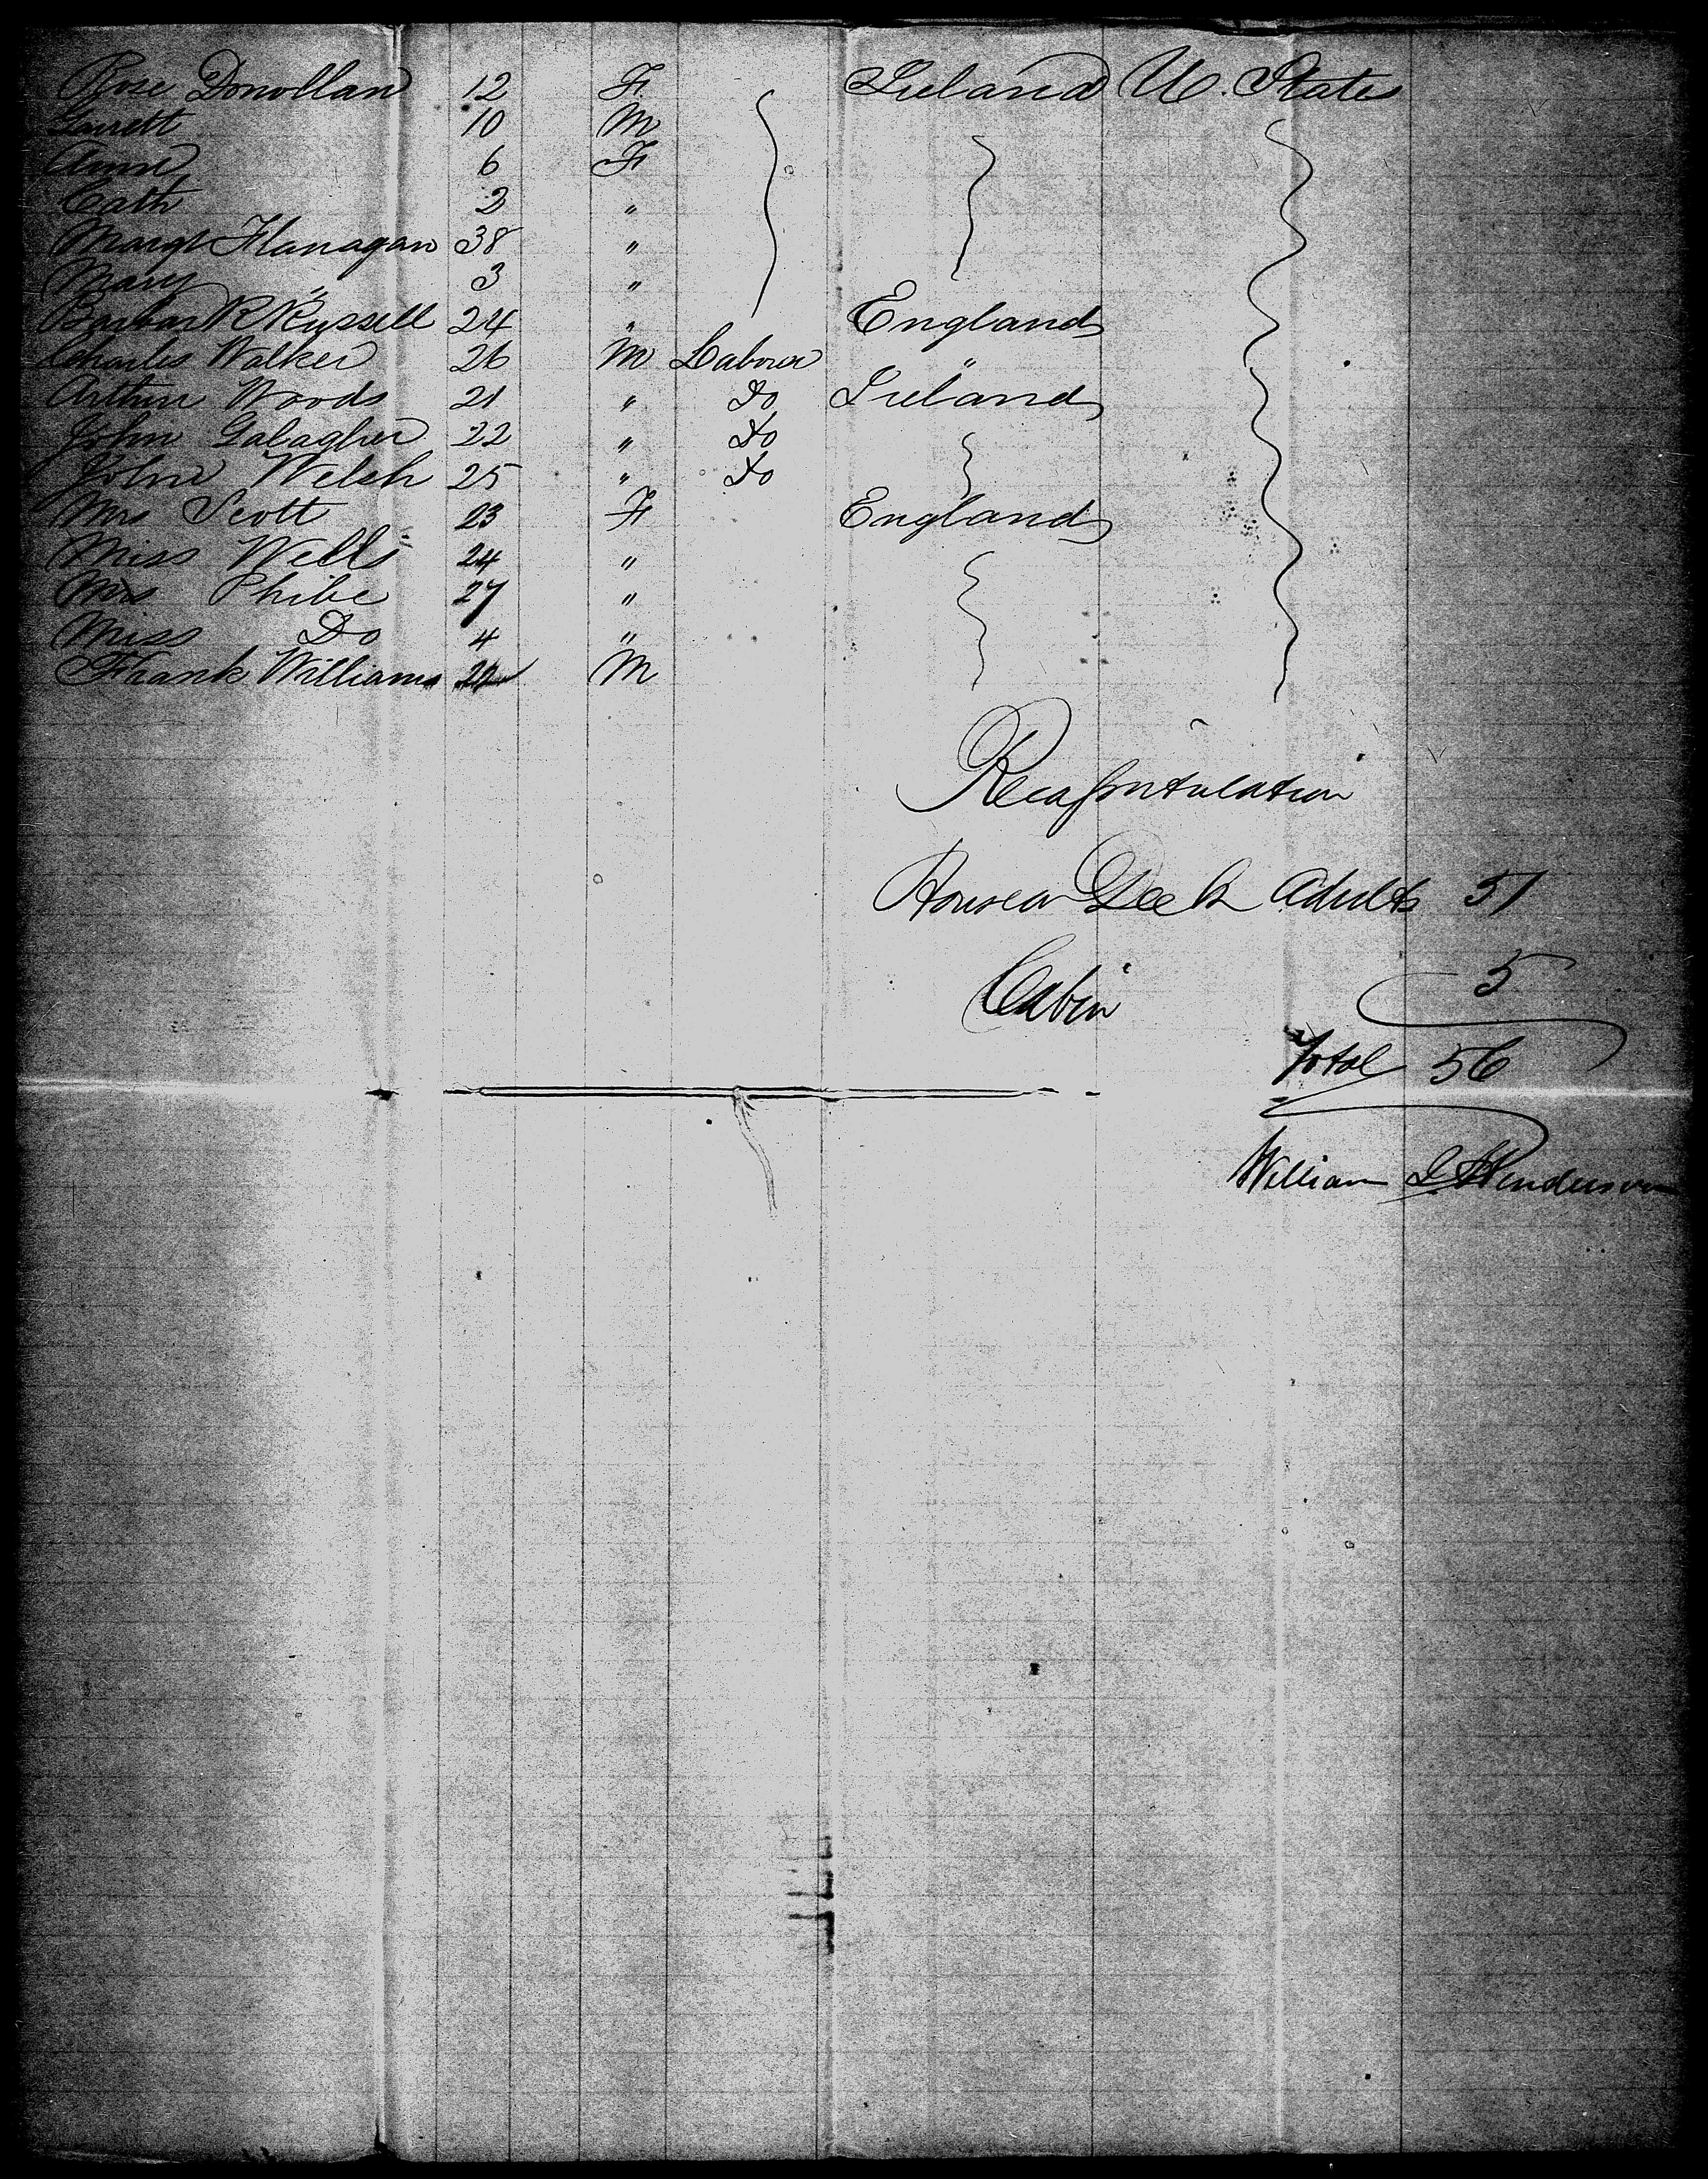 Rose Donollan 12 F Ireland U. States
Garrett 10 M
Anne 6 F
Cath 2 "
Margt Flanagan 38 "
Mary " 3 "
Barbar R Russell 24 " England
Charles Walker 26 M Laborer "
Arthur Woods 21 " Do Ireland
John Galagher 22 " Do
John Welsh 25 " Do
Mrs Scott 23 F England
Miss Wells 24 "
Mrs Phibe 27 "
Miss Do 4 "
Frank Williams M
Recapitulation
House on Deck Adults 51
Cabin 5
Total 56
William Henderson